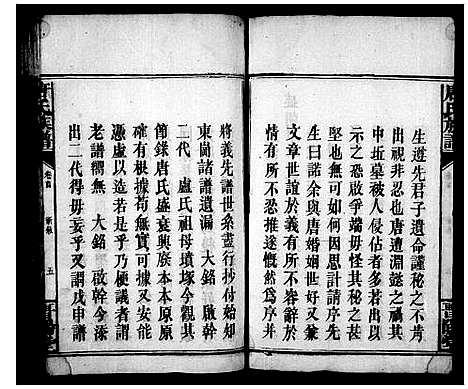 生遵先君子遺命謹秘之不肯
出視非忍也唐遭淵懿之禍其
中坵墓被人侵佔者多矣明季
至今時尚爭端毋怪其秘之甚
堅也無可如何因思計請序先
生曰諾余與唐婚姻世好又兼
文章世誼於義有所不辭於
情有所不忍推遂慨然為序并
將義先譜世系盡行抄付始知
東閣諸譜遺漏 大銘 啟幹
二代 盧氏祖母墳塚今觀其
節錄唐氏盛衰興廢本本原原
確有根據苟無實可據又安能
憑虛以造若是乎乃梗議者謂
老譜櫩無 大銘 啟幹今添
出二代得毋妄乎又謂戊申譜
唐氏族譜
卷首
五